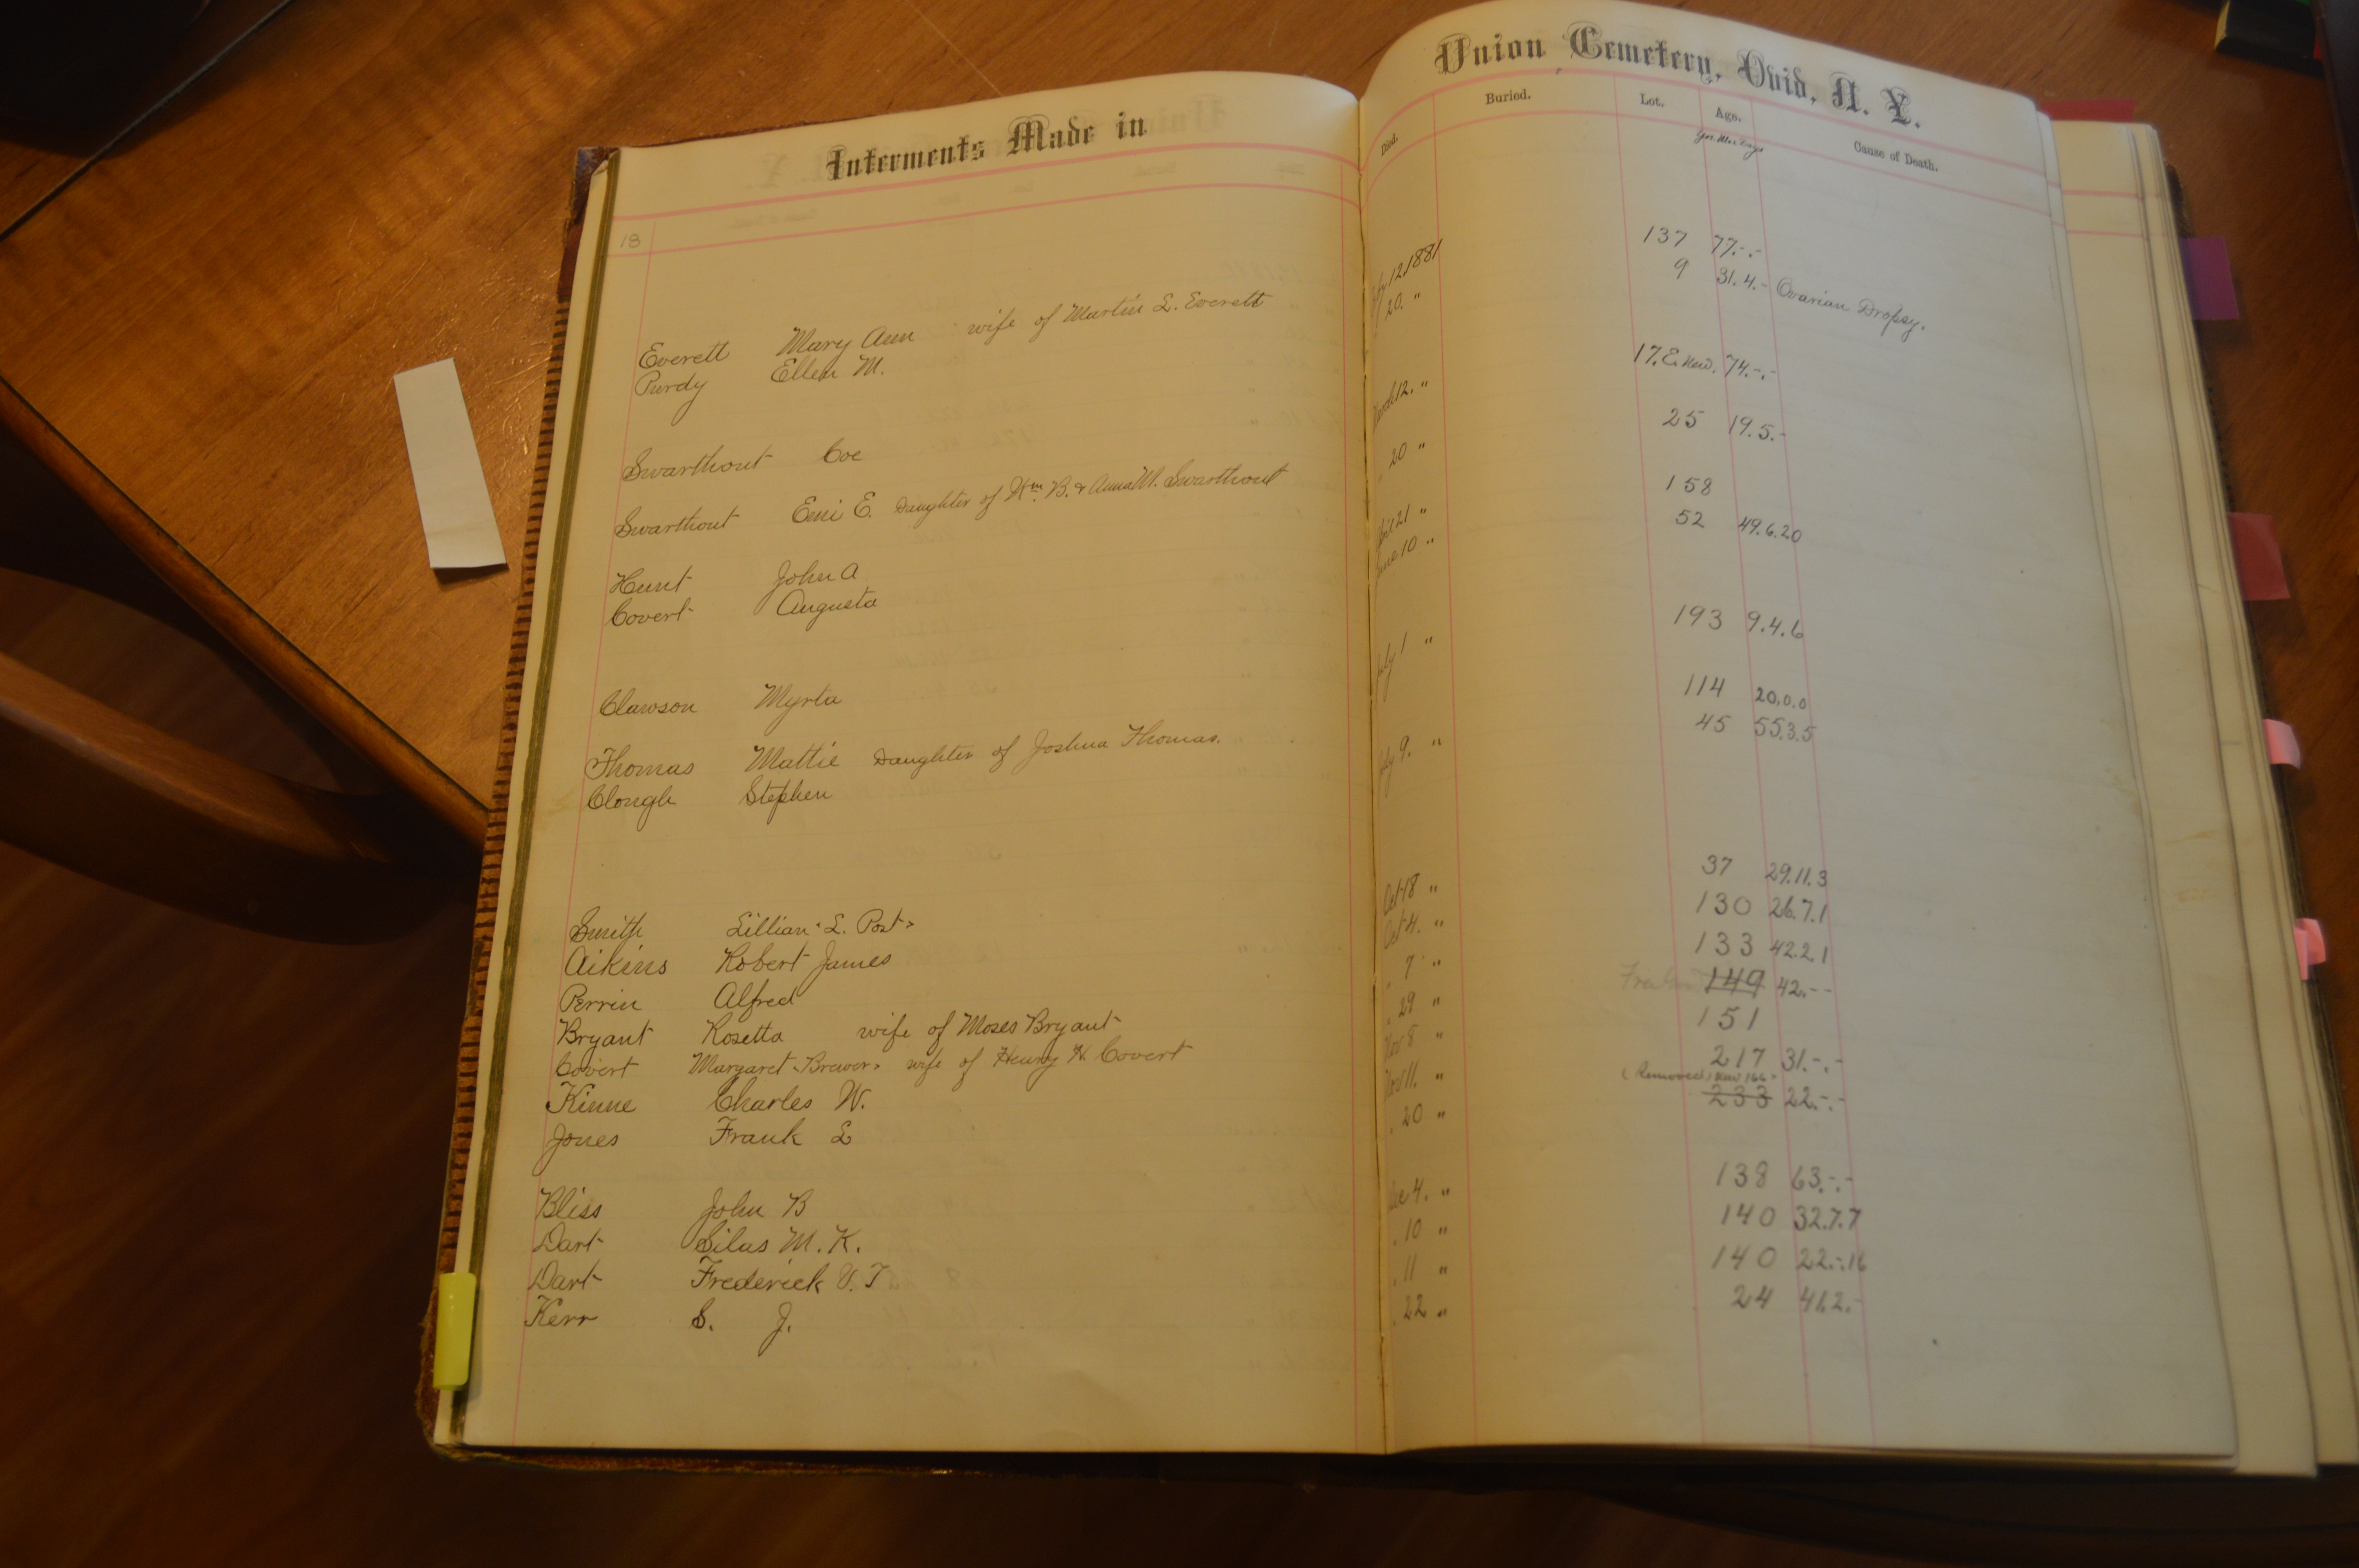 Interments Made in
Union Cemetery, Ovid, N. Y.
Died. Buried. Lot. Age. Cause of Death.
Yrs. Mos. Days
18
Everett Mary Ann wife of Martin L. Everett 12 1881 137 77.-.-
Purdy Ellen M. 20. " 9 31.4.- Ovarian Dropsy.
Swarthout Coe March 12. " 17. E. New. 74.-.-
Swarthout Emi E. Daughter of Wm. B. & Anna M. Swarthout 20 " 25 19.5.-
Hunt John A April 21 " 158
Covert Augusta June 10 " 52 49.6.20
Clawson Myrta July 1 " 193 9.4.6
Thomas Mattie Daughter of Joshua Thomas. 114 20.0.0
Clough Stephen 9. " 45 55.3.5
Smith Lillian L. Post Oct 18 " 37 29.11.3
Aikins Robert James Oct 4. " 130 26.7.1
Perrin Alfred " 7 " 133 42.2.1
Bryant Rosetta wife of Moses Bryant " 29 " 149 42.--
Covert Margaret Brewer wife of Henry H. Covert Nov 8 " 151
Kinne Charles W. Nov 11. " 217 31.-.-
(Removed New 166)
Jones Frank L " 20 " 233 22.-.-
Bliss John B Dec 4. " 138 63.-.-
Dart Silas M. K. " 10 " 140 32.7.7
Dart Frederick V. T " 11 " 140 22.-.16
Kerr S. J. " 22 " 24 41.2.-